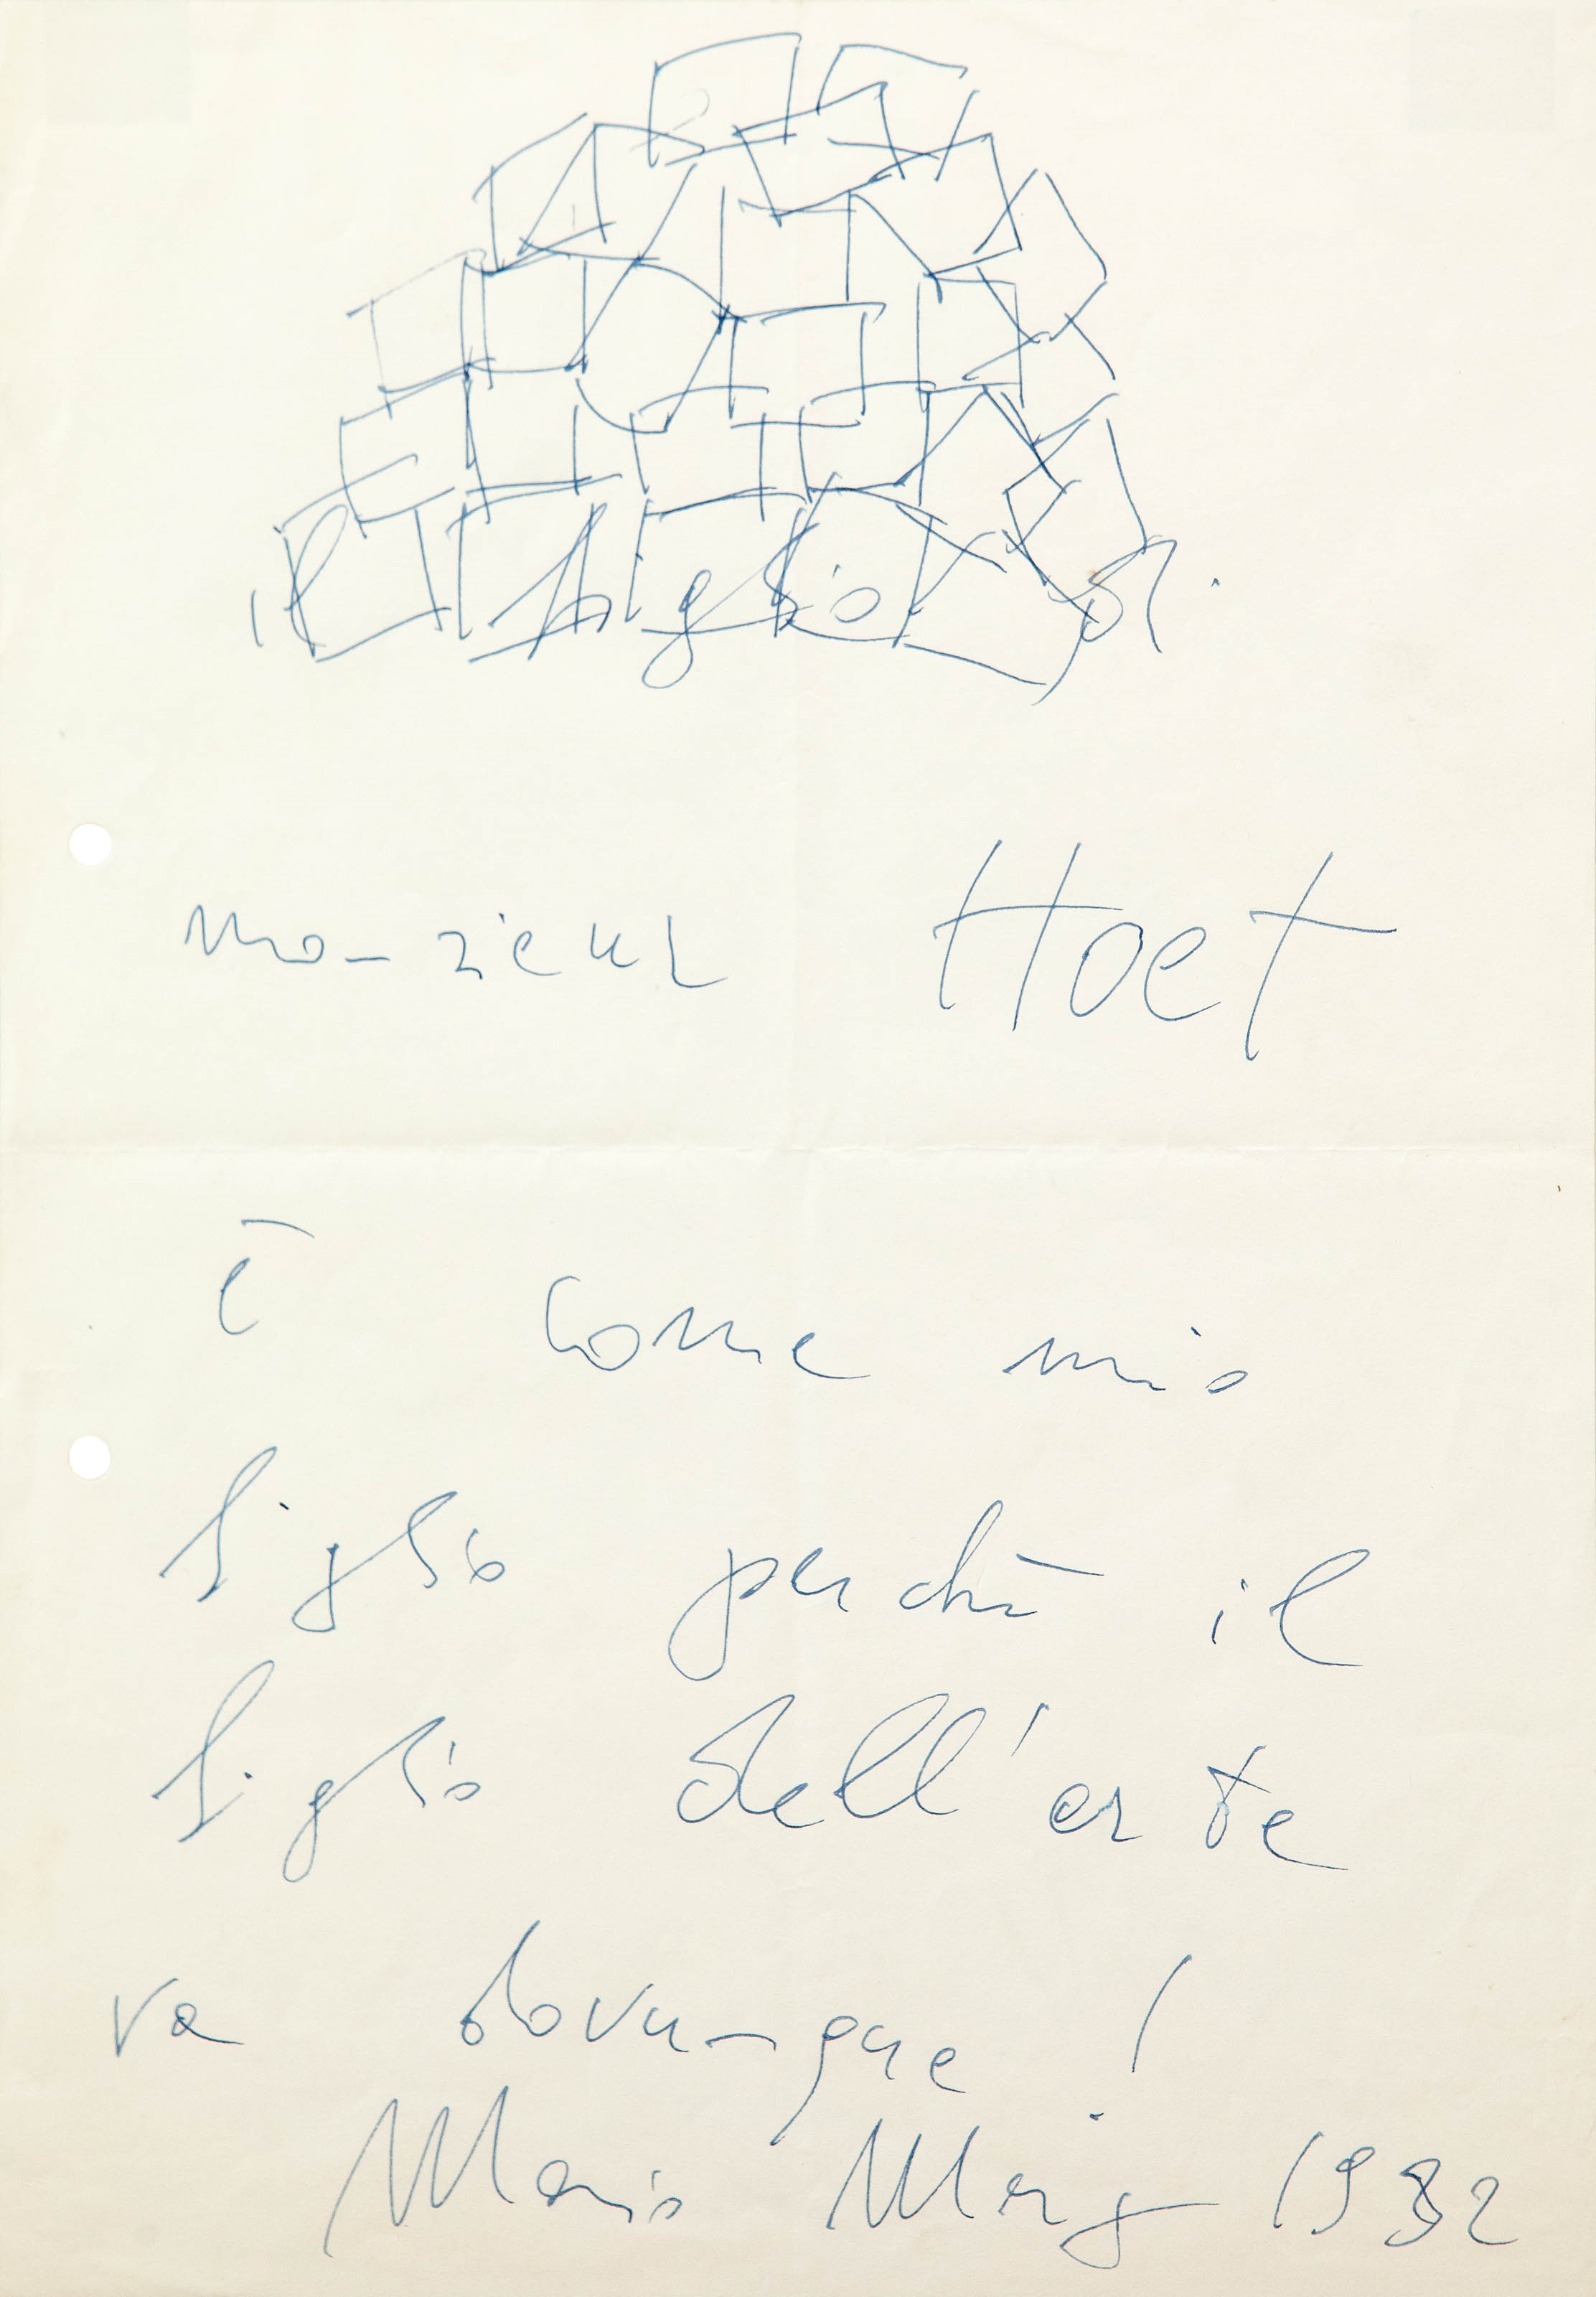 il figlio di
monsieur Hoet
ē come mio
figlio perchē il
figlio dell'arte
va dovunque!
Mario Merz 1992